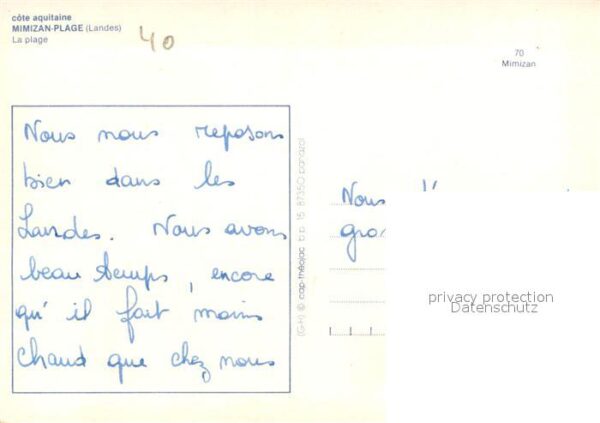 côte aquitaine
MIMIZAN-PLAGE (Landes)
La plage
40
70
Mimizan
Nous nous reposons
bien dans les
Landes. Nous avons
beau temps, encore
qu'il fait moins
chaud que chez nous
(G-H) © cap-théojac b.p. 15 87350 panazol
Nous
privacy protection
Datenschutz